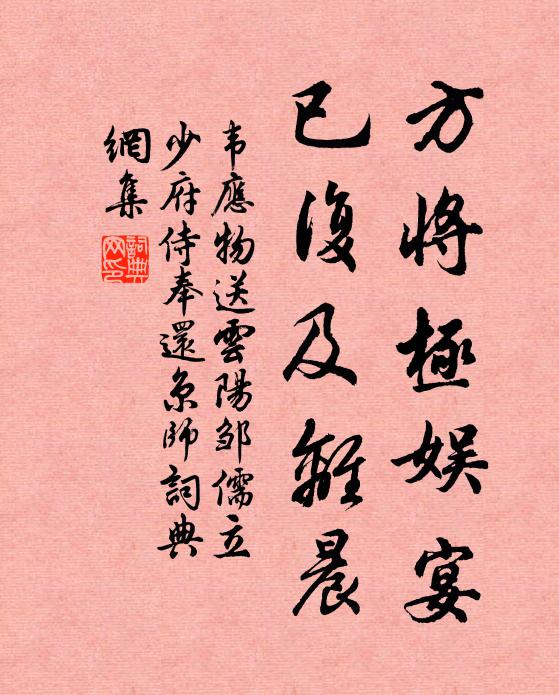 方将極娱宴
已復及離晨
韦應物送雲陽邹儒立
少府侍奉還京師詞典
網集
詞典網印